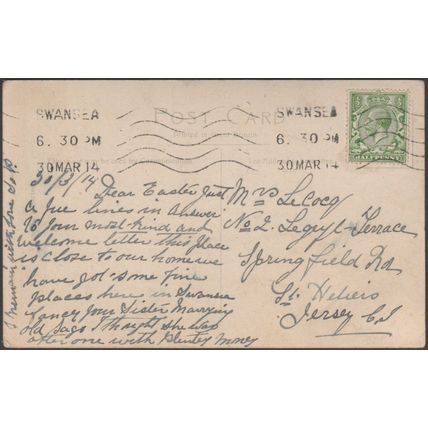 POST CARD
SWANSEA
6.30 PM
30 MAR 14
SWANSEA
6.30 PM
30 MAR 14
HALFPENNY
30/3/14
Dear Easter Just
a fue lines in answer
to your most kind and
Welcome letter this place
is close to our home we
have got some fine
places here in Swansea
fancy your Sister Marrying
old Jago I thought she was
after one with Plenty Money
I Remain with love
Mrs LeCocq
No 2 Terrace
Springfield Rd
St Heliers
Jersey C.I